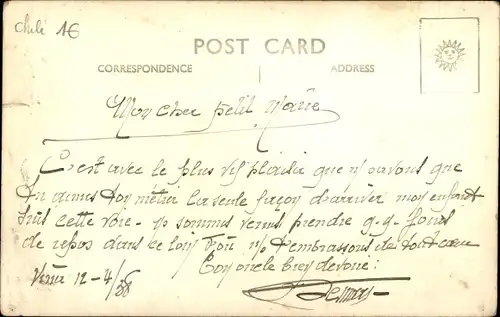 chili 1€
POST CARD
CORRESPONDENCE
ADDRESS
Mon cher petit
C'est avec le plus vif plaisir que n/ savons que
tu aimes ton métier la seule façon d'arriver mon enfant
suis cette voie. n/ sommes venus prendre q.q. jours
de repos dans ce n/ t'embrassons de tout cœur
Ton oncle bien dévoué:
12-4/38